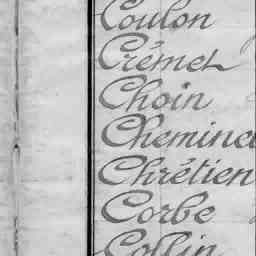 Coulon
Crémet
Choin
Chemine
Chrétien
Corbe
Collin